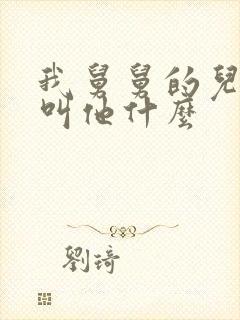 我舅舅的兒
叫他什麼
劉琦